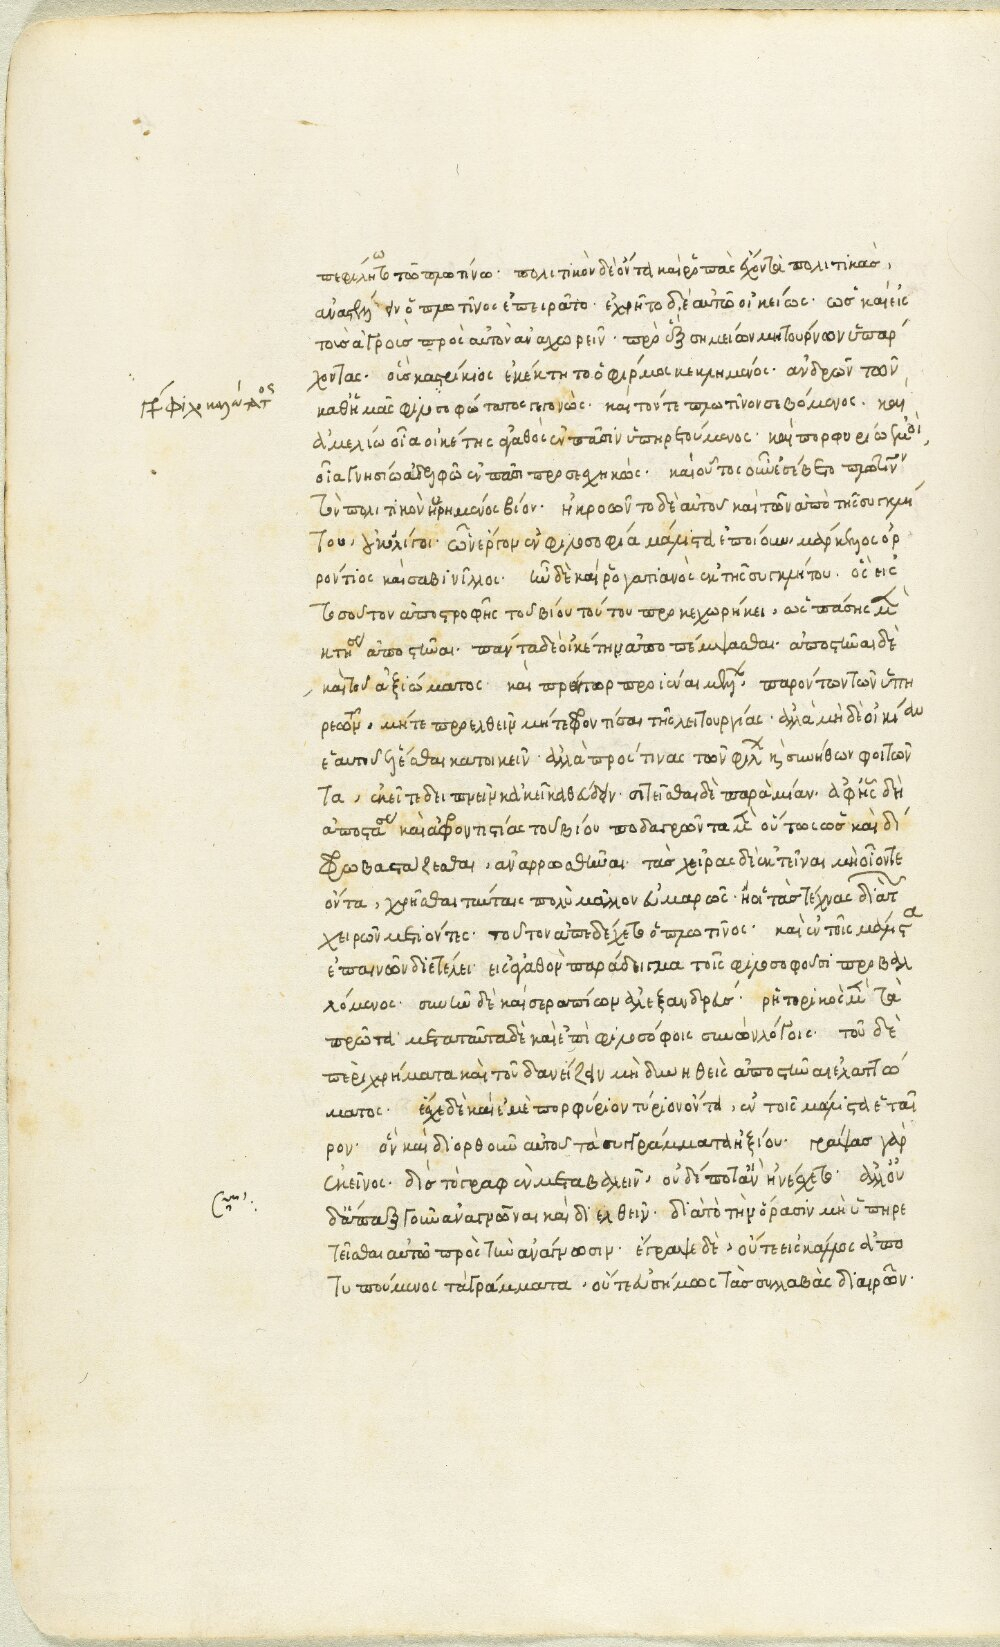 πεφιλημένω τῶ πλωτίνω· πολιτικὸν δὲ ὄντα καὶ ῥοπὰς ἔχοντα πολιτικὰς,
ὁ πλωτῖνος ἐπειρᾶτο· ἐχρῆτο δὲ αὐτῶ οἰκείως· ὡς καὶ εἰς
τοὺς ἀγροὺς πρὸς αὐτὸν ἀναχωρεῖν· πρὸ ἓξ σημείων μητουρνῶν ὑπάρ
χοντας· οὓς καστρίκιος ἐκέκτητο ὁ φίρμος κεκλημένος· ἀνδρῶν τῶν
καθ' ἡμᾶς φιλοσοφώτατος γεγονὼς· καὶ τόν τε πλωτῖνον σεβόμενος· καὶ
ἀμελίω οἷα οἰκέτης ἀγαθὸς ἐν πᾶσιν ὑπηρετούμενος· καὶ πορφυρίω ἐμοὶ,
οἷα γνησίω ἀδελφῶ ἐν πᾶσι προσεσχηκώς· καὶ οὗτος οὖν ἐσέβετο πλωτῖνον
τὸν πολιτικὸν ἡρημένος βίον· ἠκροῶντο δὲ αὐτοῦ καὶ τῶν ἀπὸ τῆς συγκλή
του, οὐκ ὀλίγοι· ὧν ἔργον ἐν φιλοσοφία μάλιστα ἐποίουν, μάρκελλος ὀρ
ρόντιος καὶ σαβινῖλλος· ἦν δὲ καὶ ῥογατιανὸς ἐκ τῆς συγκλήτου. ὃς εἰς
τοσοῦτον ἀποστροφῆς τοῦ βίου τούτου προκεχωρήκει, ὡς πάσης μὲν
κτήσεως ἀποστῆναι· πάντα δὲ οἰκέτην ἀποπέμψασθαι· ἀποστῆναι δὲ
καὶ τοῦ ἀξιώματος· καὶ πραίτωρ προϊέναι μέλλων, παρόντων τῶν ὑπη
ρετῶν, μήτε προελθεῖν μήτε φροντίσαι τῆς λειτουργίας· ἀλλὰ μηδὲ οἰκίαν
ἑαυτοῦ ἑλέσθαι κατοικεῖν· ἀλλὰ πρός τινας τῶν φίλων καὶ συνήθων φοιτῶν
τα, ἐκεῖ τε δειπνεῖν κἀκεῖ καθεύδειν· σιτεῖσθαι δὲ παρὰ μίαν· ἀφ' ἧς δὴ
ἀποστάσεως καὶ ἀφροντιστίας τοῦ βίου ποδαγρῶντα μὲν οὕτως ὡς καὶ δί
φρω βαστάζεσθαι, ἀναρρωσθῆναι· τὰς χεῖρας δὲ ἐκτεῖναι μὴ οἷόν τε
ὄντα, χρῆσθαι ταύταις πολὺ μᾶλλον εὐμαρῶς· ἢ οἱ τὰς τέχνας διὰ τῶν
χειρῶν μετιόντες· τοῦτον ἀπεδέχετο ὁ πλωτῖνος· καὶ ἐν τοῖς μάλιστα
ἐπαινῶν διετέλει· εἰς ἀγαθὸν παράδειγμα τοῖς φιλοσοφοῦσι προβαλ
λόμενος· συνῆν δὲ καὶ σεραπίων ἀλεξανδρεύς· ῥητορικὸς μὲν τὰ
πρῶτα· μετὰ ταῦτα δὲ καὶ ἐπὶ φιλοσόφοις συνὼν λόγοις· τοῦ δὲ
περὶ χρήματα καὶ τοῦ δανείζειν μὴ δυνηθεὶς ἀποστῆναι ἐλαττώ
ματος· ἔσχε δὲ καὶ ἐμὲ πορφύριον τύριον ὄντα, ἐν τοῖς μάλιστα ἑταῖ
ρον· ὃν καὶ διορθοῦν αὐτοῦ τὰ συγγράμματα ἠξίου· γράψας γὰρ
ἐκεῖνος· δὶς τὸ γραφὲν μεταβαλεῖν, οὐδέποτ' ἂν ἠνέσχετο· ἀλλ' οὐ
δ' ἅπαξ γοῦν ἀναγνῶναι καὶ διελθεῖν· διὰ τὸ τὴν ὅρασιν μὴ ὑπηρε
τεῖσθαι αὐτῶ πρὸς τὴν ἀνάγνωσιν· ἔγραφε δὲ, οὔτε εἰς κάλλος ἀπο
τυπούμενος τὰ γράμματα, οὔτε εὐσήμως τὰς συλλαβὰς διαιρῶν·